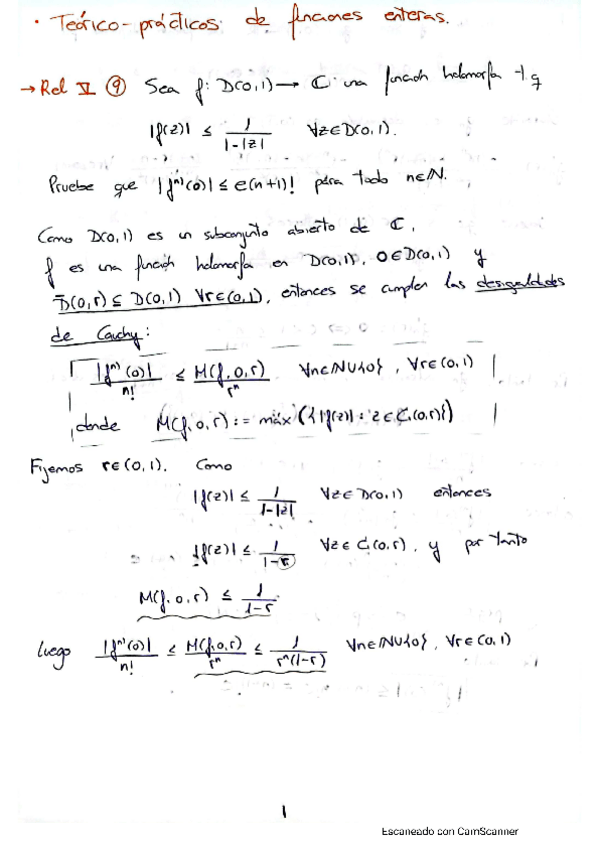 · Teórico-prácticos de funciones enteras.
→ Rel V ⑨ Sea f: D(0,1) → ℂ una función holomorfa t.q
|f(z)| ≤ 1/(1-|z|) ∀z∈D(0,1).
Pruebe que |f⁽ⁿ⁾(0)| ≤ e(n+1)! para todo n∈ℕ.
Como D(0,1) es un subconjunto abierto de ℂ,
f es una función holomorfa en D(0,1), 0∈D(0,1) y
D̄(0,r) ⊆ D(0,1) ∀r∈(0,1), entonces se cumplen las desigualdades
de Cauchy:
|f⁽ⁿ⁾(0)|/n! ≤ M(f,0,r)/rⁿ ∀n∈ℕ∪{0}, ∀r∈(0,1)
donde M(f,0,r) := máx({|f(z)| : z∈C(0,r)})
Fijemos r∈(0,1). Como
|f(z)| ≤ 1/(1-|z|) ∀z∈D(0,1) entonces
|f(z)| ≤ 1/(1-r) ∀z∈C(0,r), y por tanto
M(f,0,r) ≤ 1/(1-r)
Luego |f⁽ⁿ⁾(0)|/n! ≤ M(f,0,r)/rⁿ ≤ 1/(rⁿ(1-r)) ∀n∈ℕ∪{0}, ∀r∈(0,1)
1
Escaneado con CamScanner